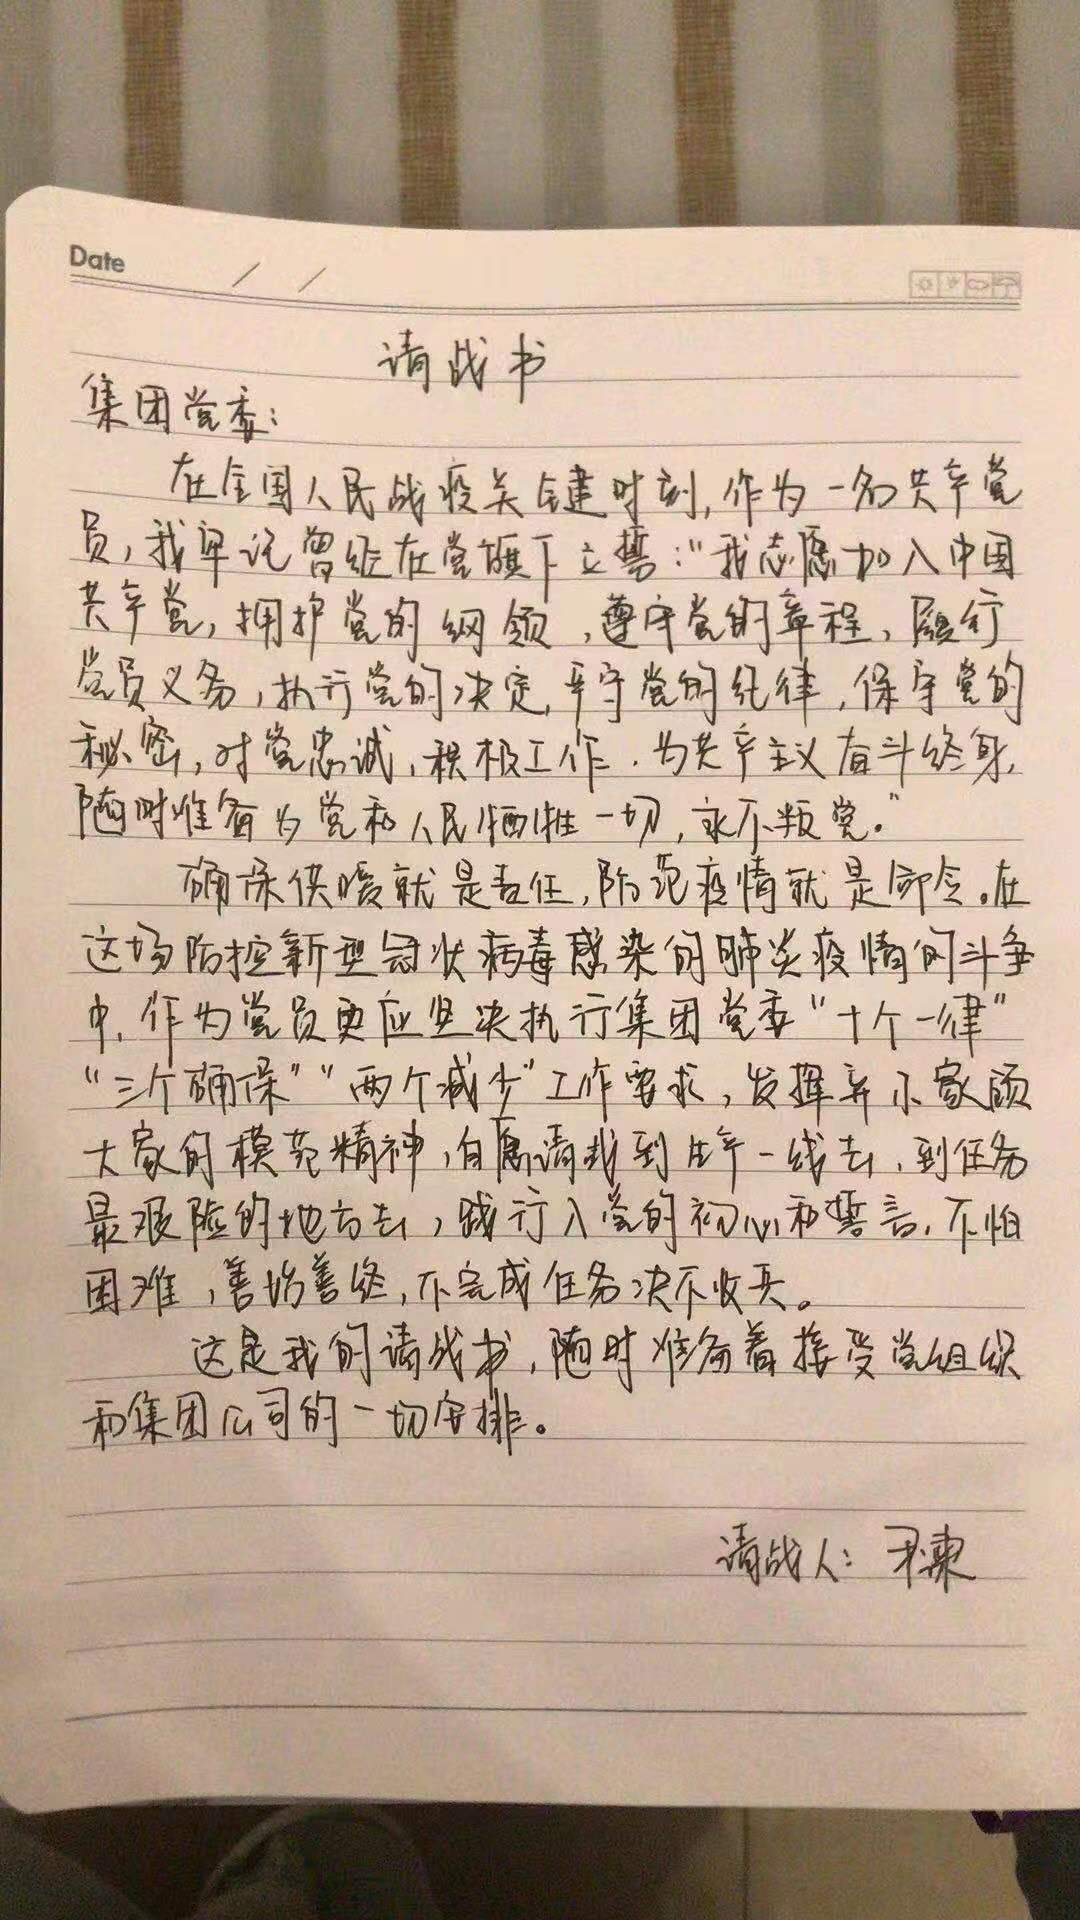 Date / /
请战书
集团党委:
在全国人民战疫关键时刻,作为一名共产党
员,我牢记曾经在党旗下立誓:"我志愿加入中国
共产党,拥护党的纲领,遵守党的章程,履行
党员义务,执行党的决定,严守党的纪律,保守党的
秘密,对党忠诚,积极工作.为共产主义奋斗终身,
随时准备为党和人民牺牲一切,永不叛党。"
确保供暖就是责任,防范疫情就是命令。在
这场防控新型冠状病毒感染的肺炎疫情的斗争
中,作为党员更应坚决执行集团党委"十个一律"
"三个确保""两个减少"工作要求,发挥弃小家顾
大家的模范精神,自愿请战到生产一线去,到任务
最艰险的地方去,践行入党的初心和誓言,不怕
困难,善始善终,不完成任务决不收兵。
这是我的请战书,随时准备着接受党组织
和集团公司的一切安排。
请战人: